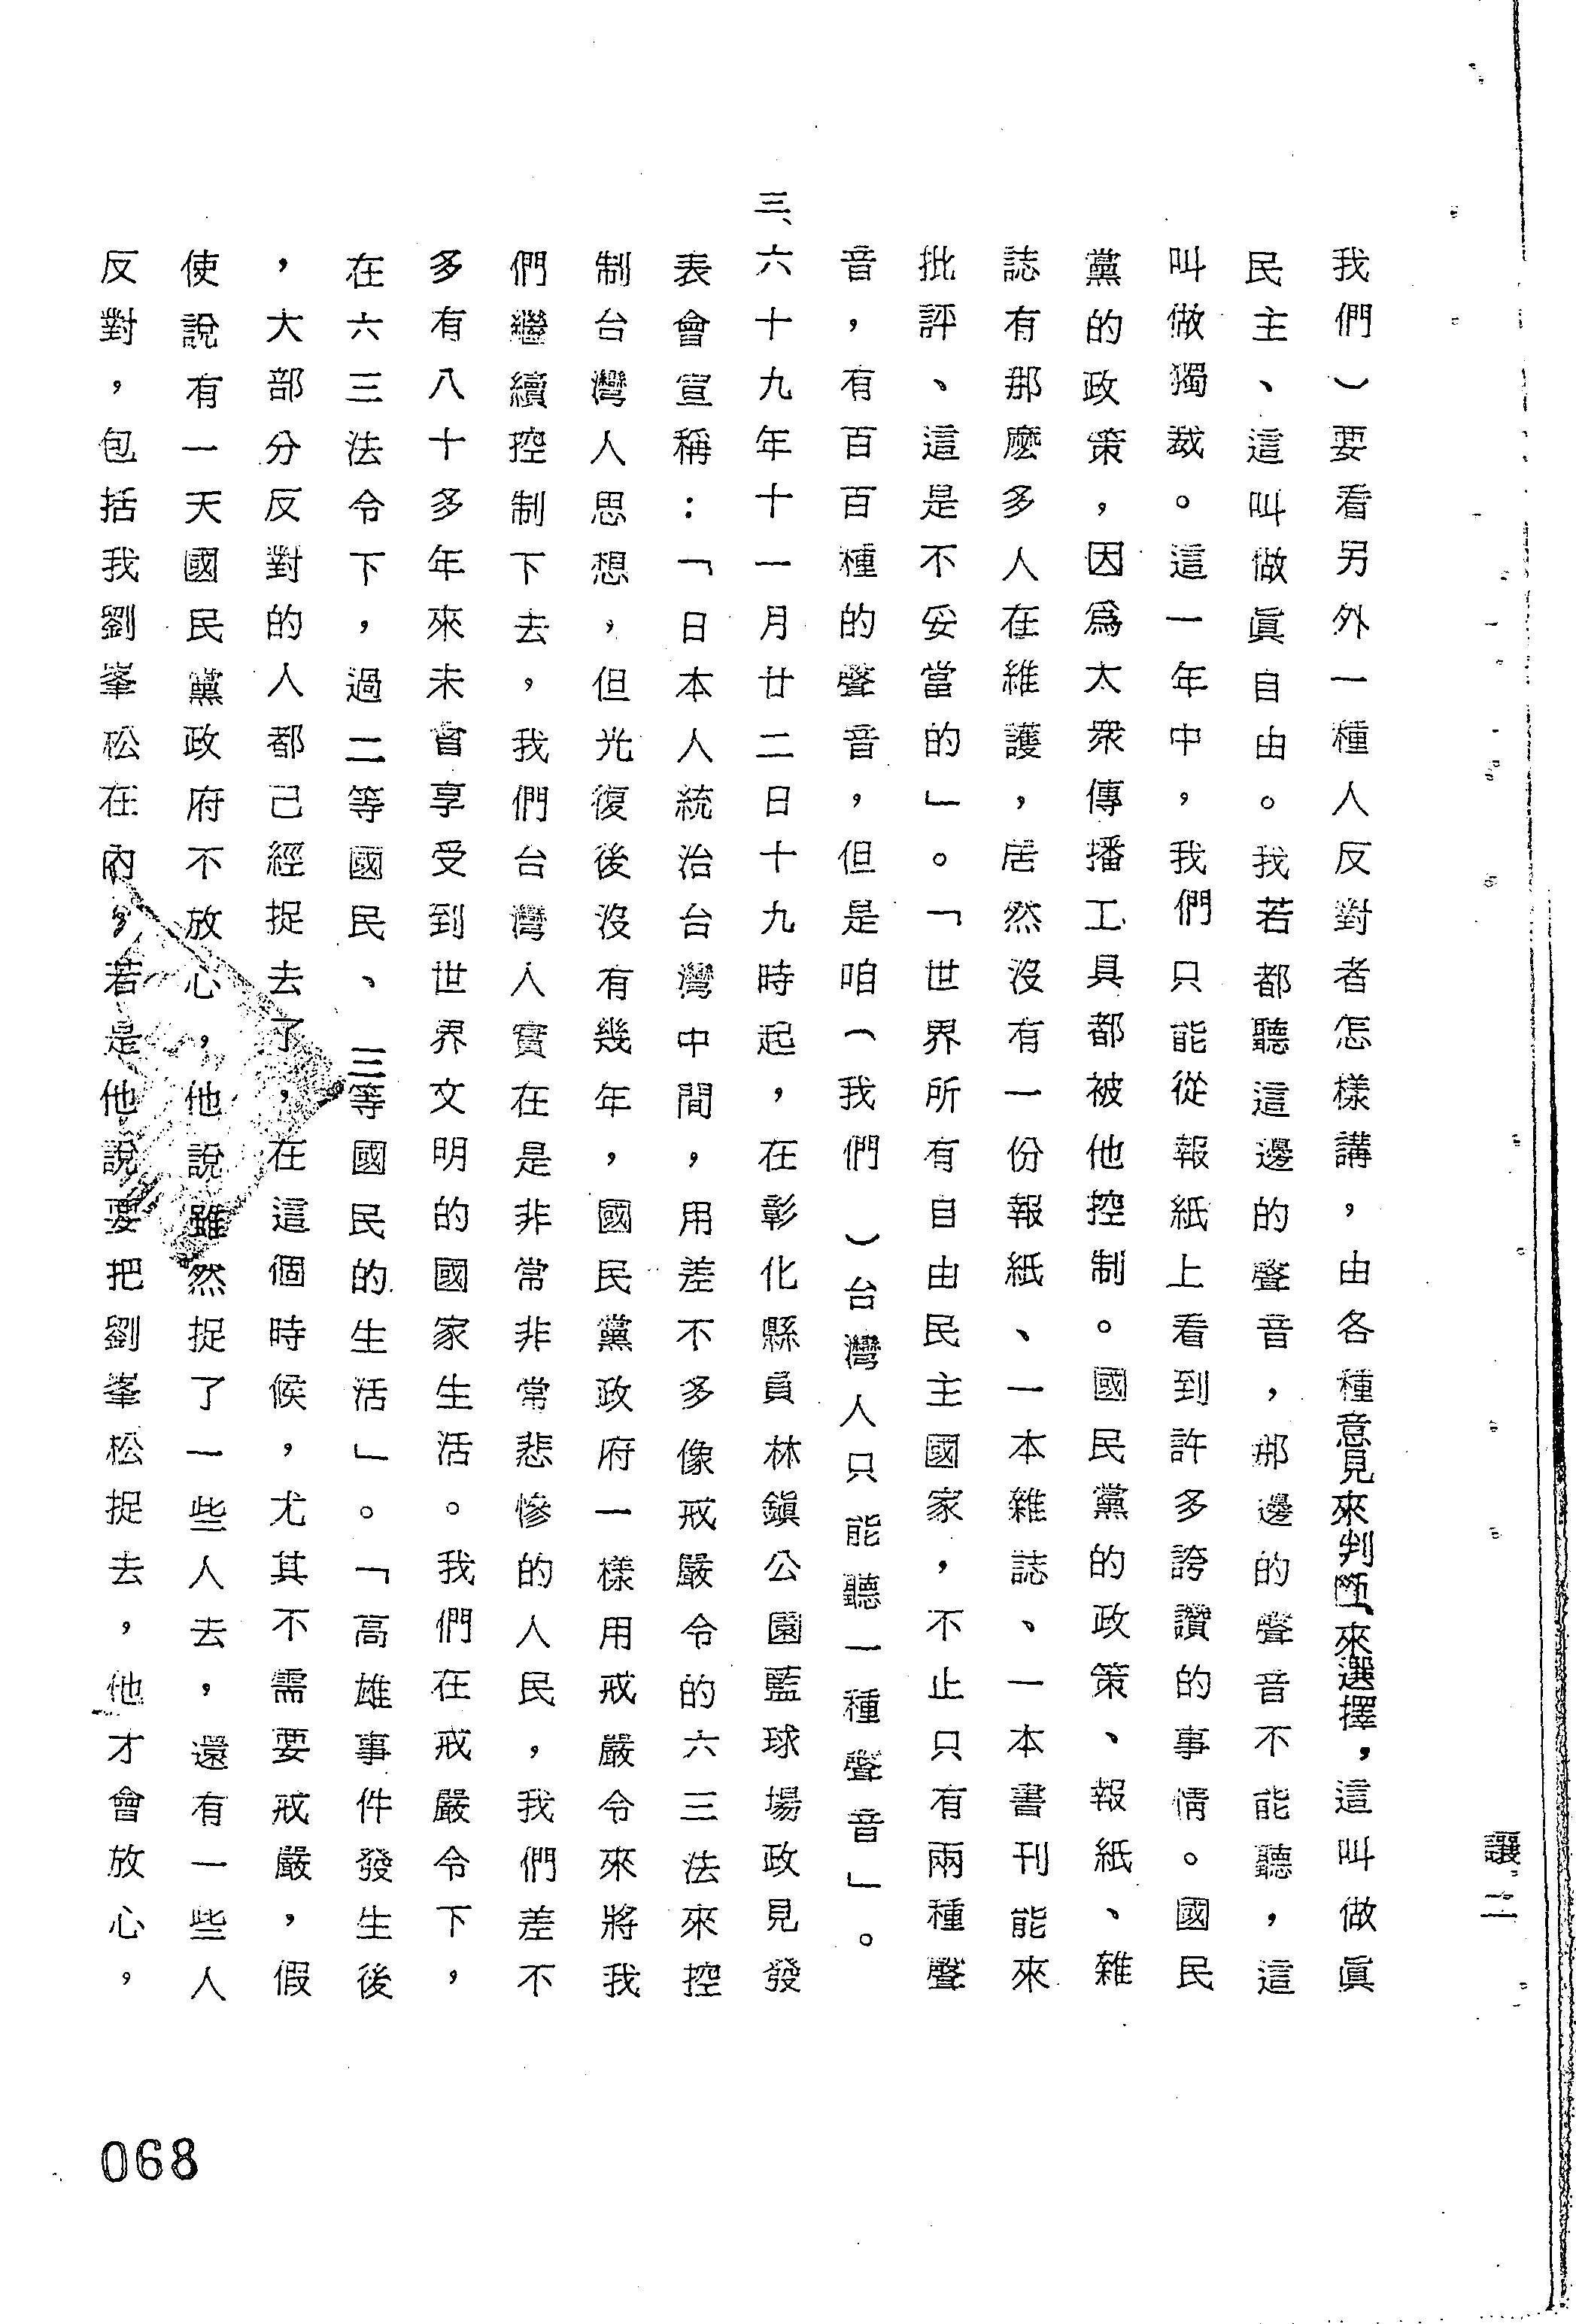 讓二
我們）要看另外一種人反對者怎樣講，由各種意見來判斷、來選擇，這叫做眞
民主、這叫做眞自由。我若都聽這邊的聲音，那邊的聲音不能聽，這
叫做獨裁。這一年中，我們只能從報紙上看到許多誇讚的事情。國民
黨的政策，因爲大眾傳播工具都被他控制。國民黨的政策、報紙、雜
誌有那麼多人在維護，居然沒有一份報紙、一本雜誌、一本書刊能來
批評、這是不妥當的」。「世界所有自由民主國家，不止只有兩種聲
音，有百百種的聲音，但是咱（我們）台灣人只能聽一種聲音」。
三、六十九年十一月廿二日十九時起，在彰化縣員林鎭公園藍球場政見發
表會宣稱：「日本人統治台灣中間，用差不多像戒嚴令的六三法來控
制台灣人思想，但光復後沒有幾年，國民黨政府一樣用戒嚴令來將我
們繼續控制下去，我們台灣人實在是非常非常悲慘的人民，我們差不
多有八十多年來未曾享受到世界文明的國家生活。我們在戒嚴令下，
在六三法令下，過二等國民、三等國民的生活」。「高雄事件發生後
，大部分反對的人都己經捉去了，在這個時候，尤其不需要戒嚴，假
使說有一天國民黨政府不放心，他說雖然捉了一些人去，還有一些人
反對，包括我劉峯松在內，若是他說要把劉峯松捉去，他才會放心，
068